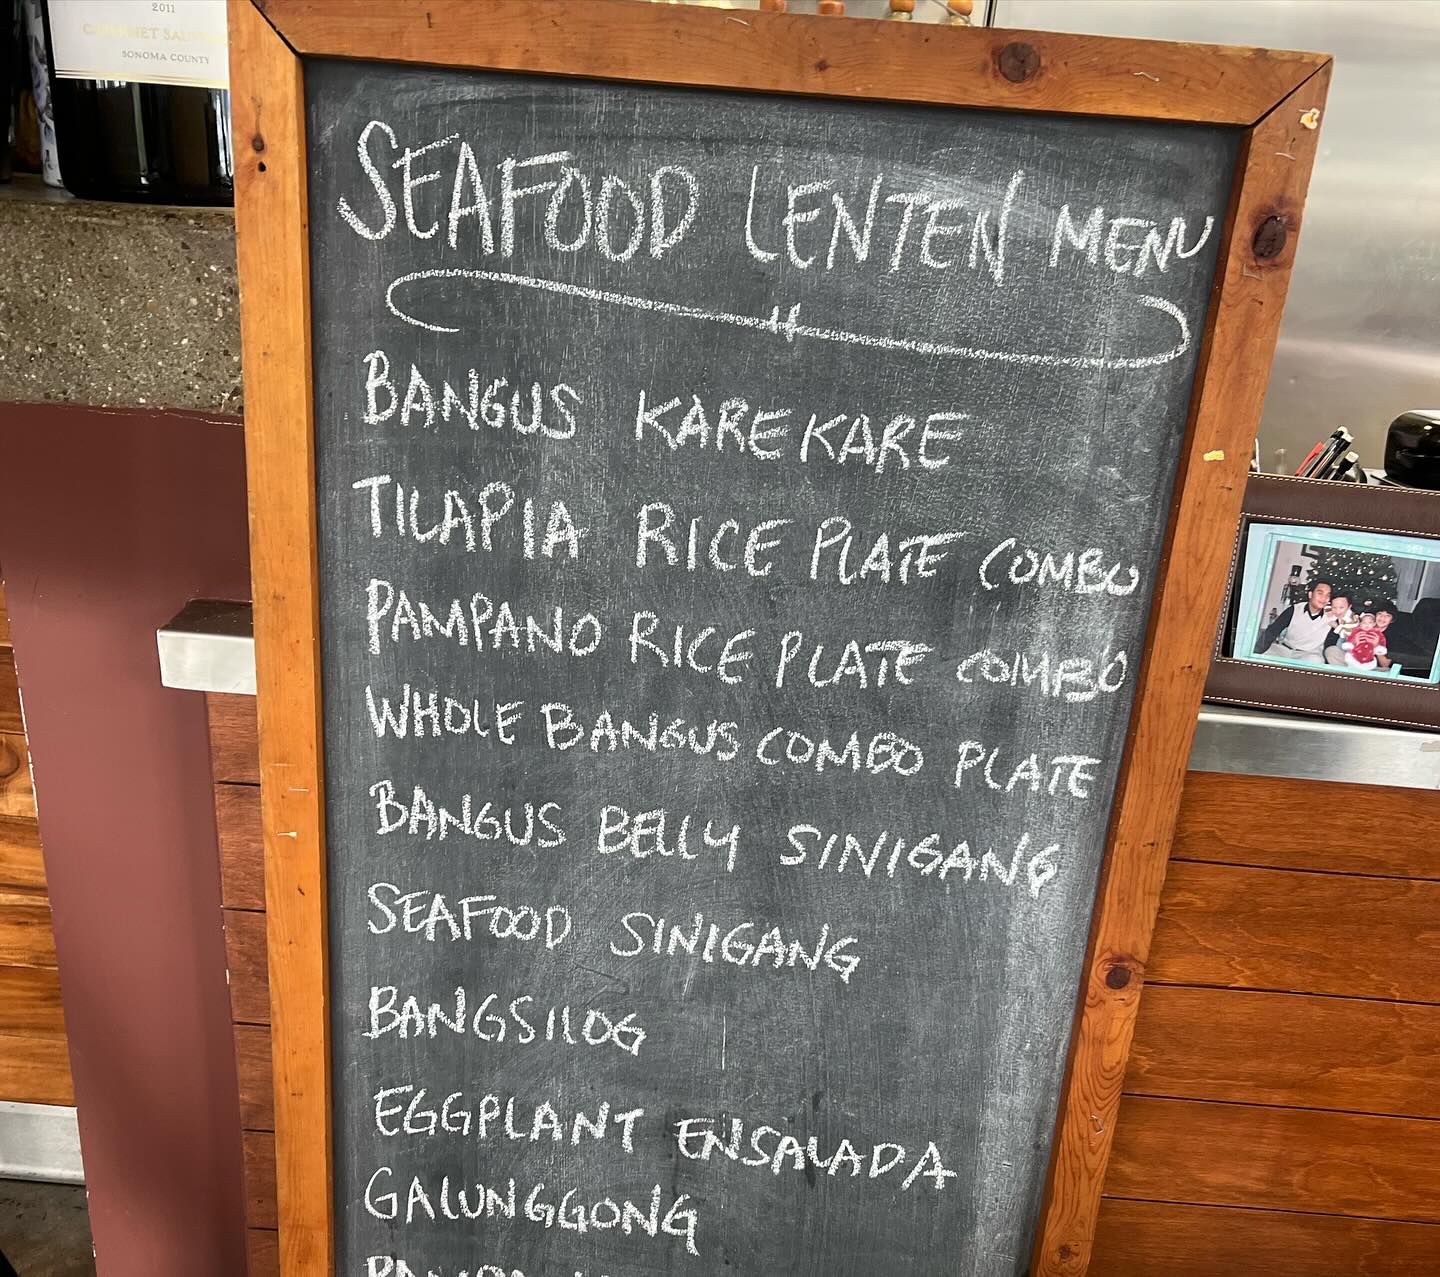 2011
CABERNET SAUV
SONOMA COUNTY
SEAFOOD LENTEN MENU
BANGUS KAREKARE
TILAPIA RICE PLATE COMBO
PAMPANO RICE PLATE COMBO
WHOLE BANGUS COMBO PLATE
BANGUS BELLY SINIGANG
SEAFOOD SINIGANG
BANGSILOG
EGGPLANT ENSALADA
GALUNGGONG